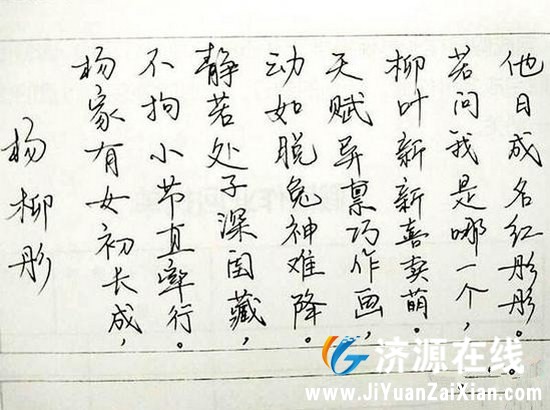 杨柳彤
杨家有女初长成，
不拘小节直率行。
静若处子深国藏，
动如脱兔神难降。
天赋异禀巧作画，
柳叶新新喜卖萌。
若问我是哪一个，
他日成名红彤彤。
济源在线
www.JiYuanZaiXian.com